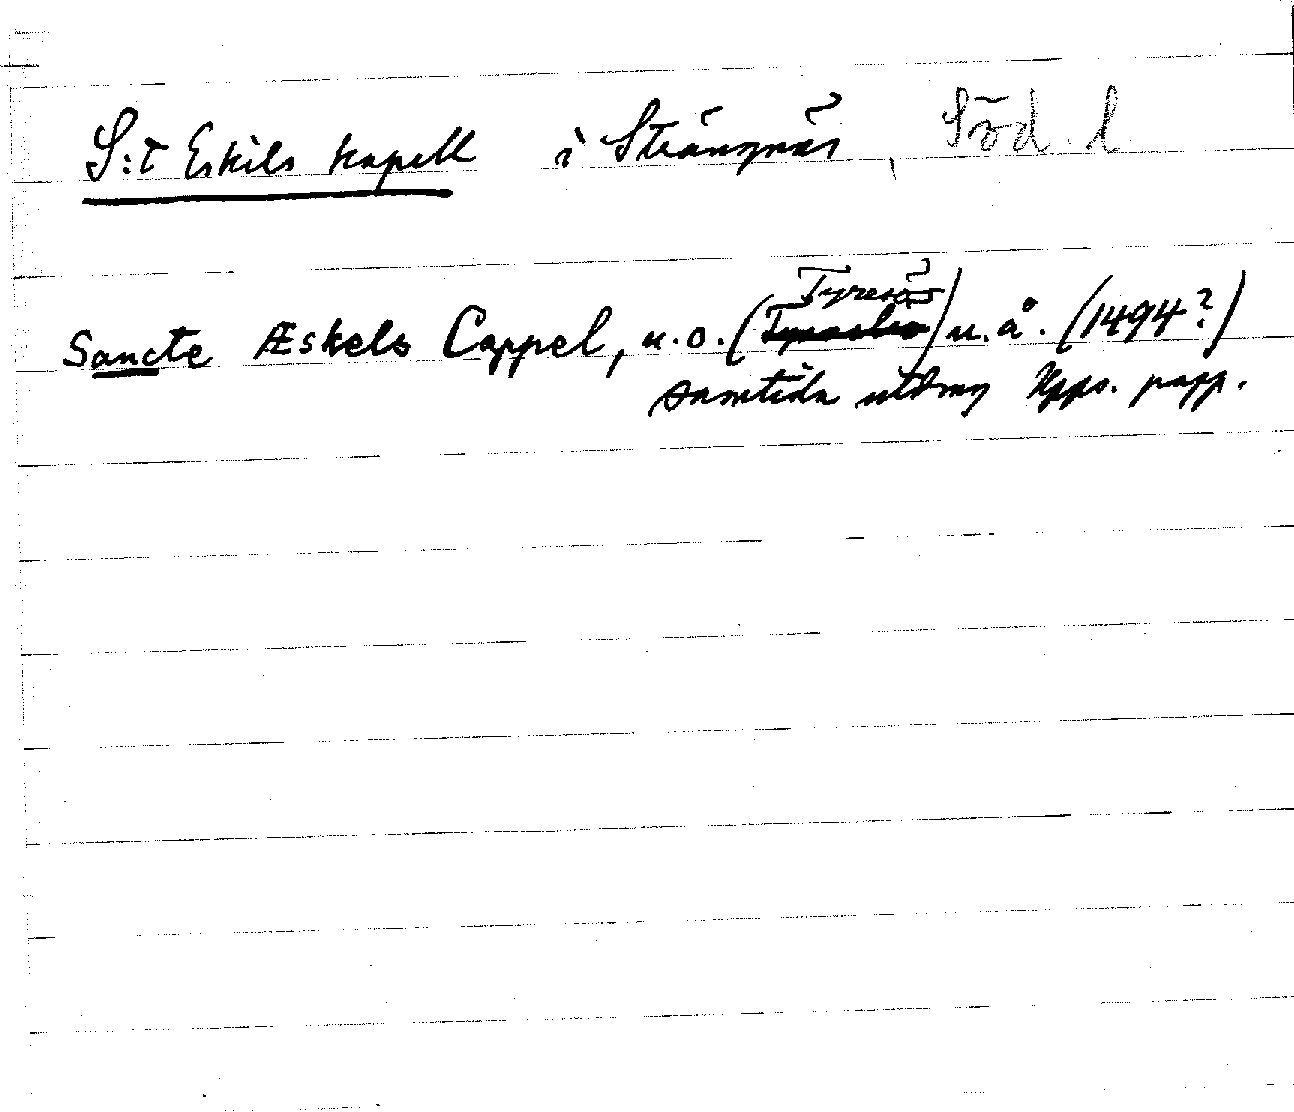 S:t Eskils kapell i Strängnäs, Söd. l
Tyresö
Sancte Æskels Cappel, u.o. () u.å. (1494?)
samtida utdrag Upps. papp.